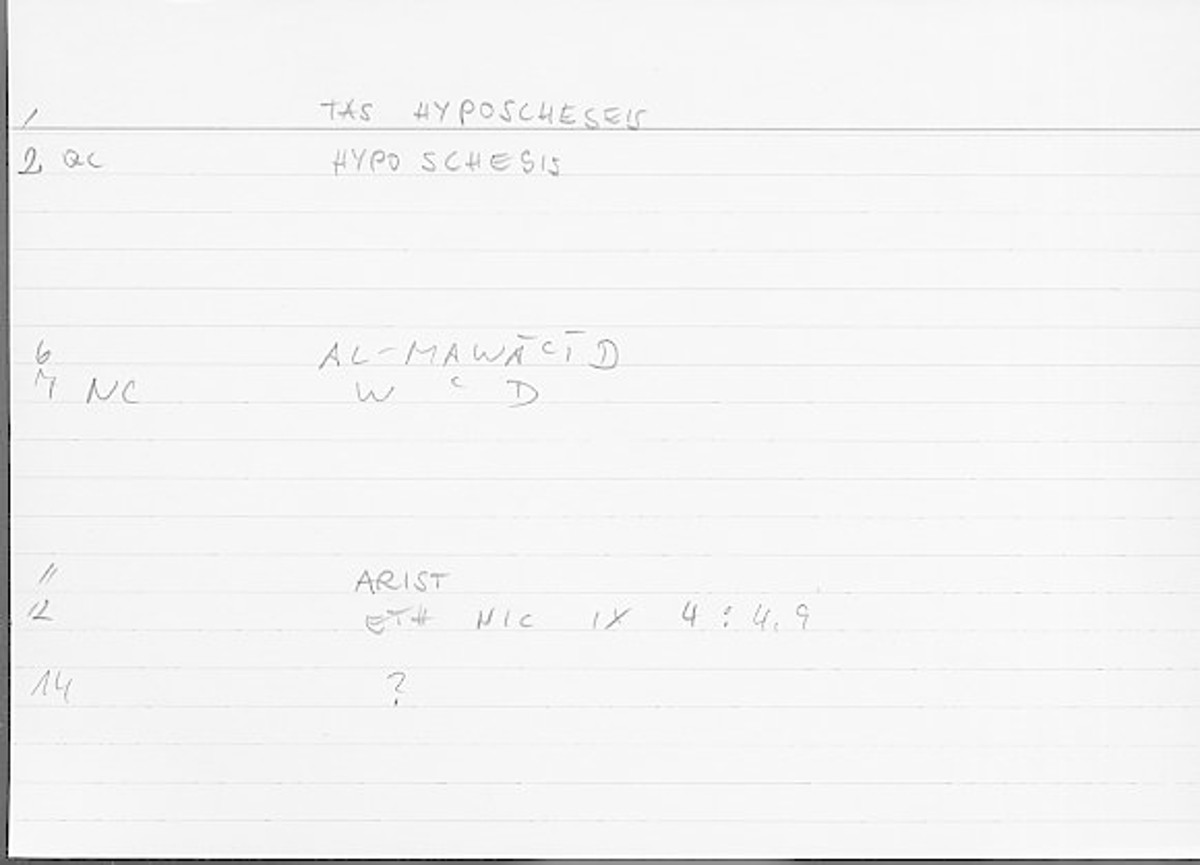 1 TAS HYPOSCHESEIS
2 QC HYPO SCHESIS
6 AL-MAWĀʿĪD
7 NC W ʿ D
11 ARIST
12 ETH NIC IX 4 : 4.9
14 ?